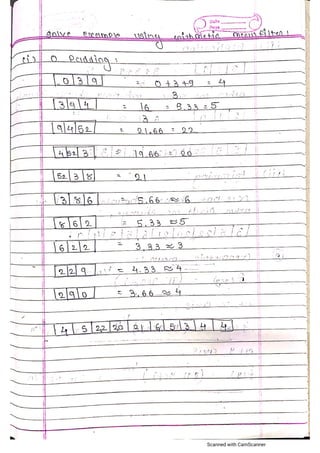 Date
Page
Solve Example using arithmetic mean filter:
(i) 0 Padding:
0 3 9 = 0+3+9 = 4
3
3 9 4 = 16 = 5.33 = 5
3
9 4 52 = 21.66 = 22
4 52 3 = 19.66 = 20
52 3 8 = 21
3 8 6 = 5.66 ≈ 6
8 6 2 = 5.33 ≈ 5
6 2 2 = 3.33 ≈ 3
2 2 9 = 4.33 ≈ 4
2 9 0 = 3.66 ≈ 4
4 5 22 20 21 6 5 3 4 4
Scanned with CamScanner